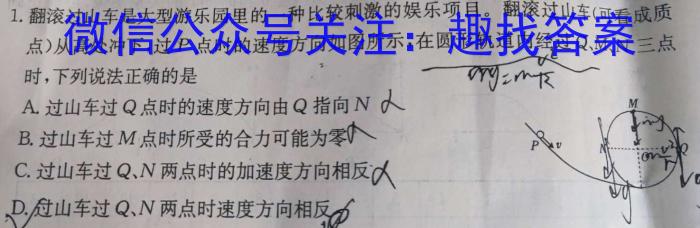 1. 翻滚过山车是大型游乐园里的一种比较刺激的娱乐项目。翻滚过山车(可看成质
点)从高处冲下,过
点时的速度方向如图所示,在圆形轨道
经过Q、
三点
时,下列说法正确的是
微信公众号关注:趣找答案
A. 过山车过Q点时的速度方向由Q指向N
B. 过山车过M点时所受的合力可能为零
C. 过山车过Q、N两点时的加速度方向相反
D. 过山车过Q、N两点时速度方向相反
M
P
v
Q
mg